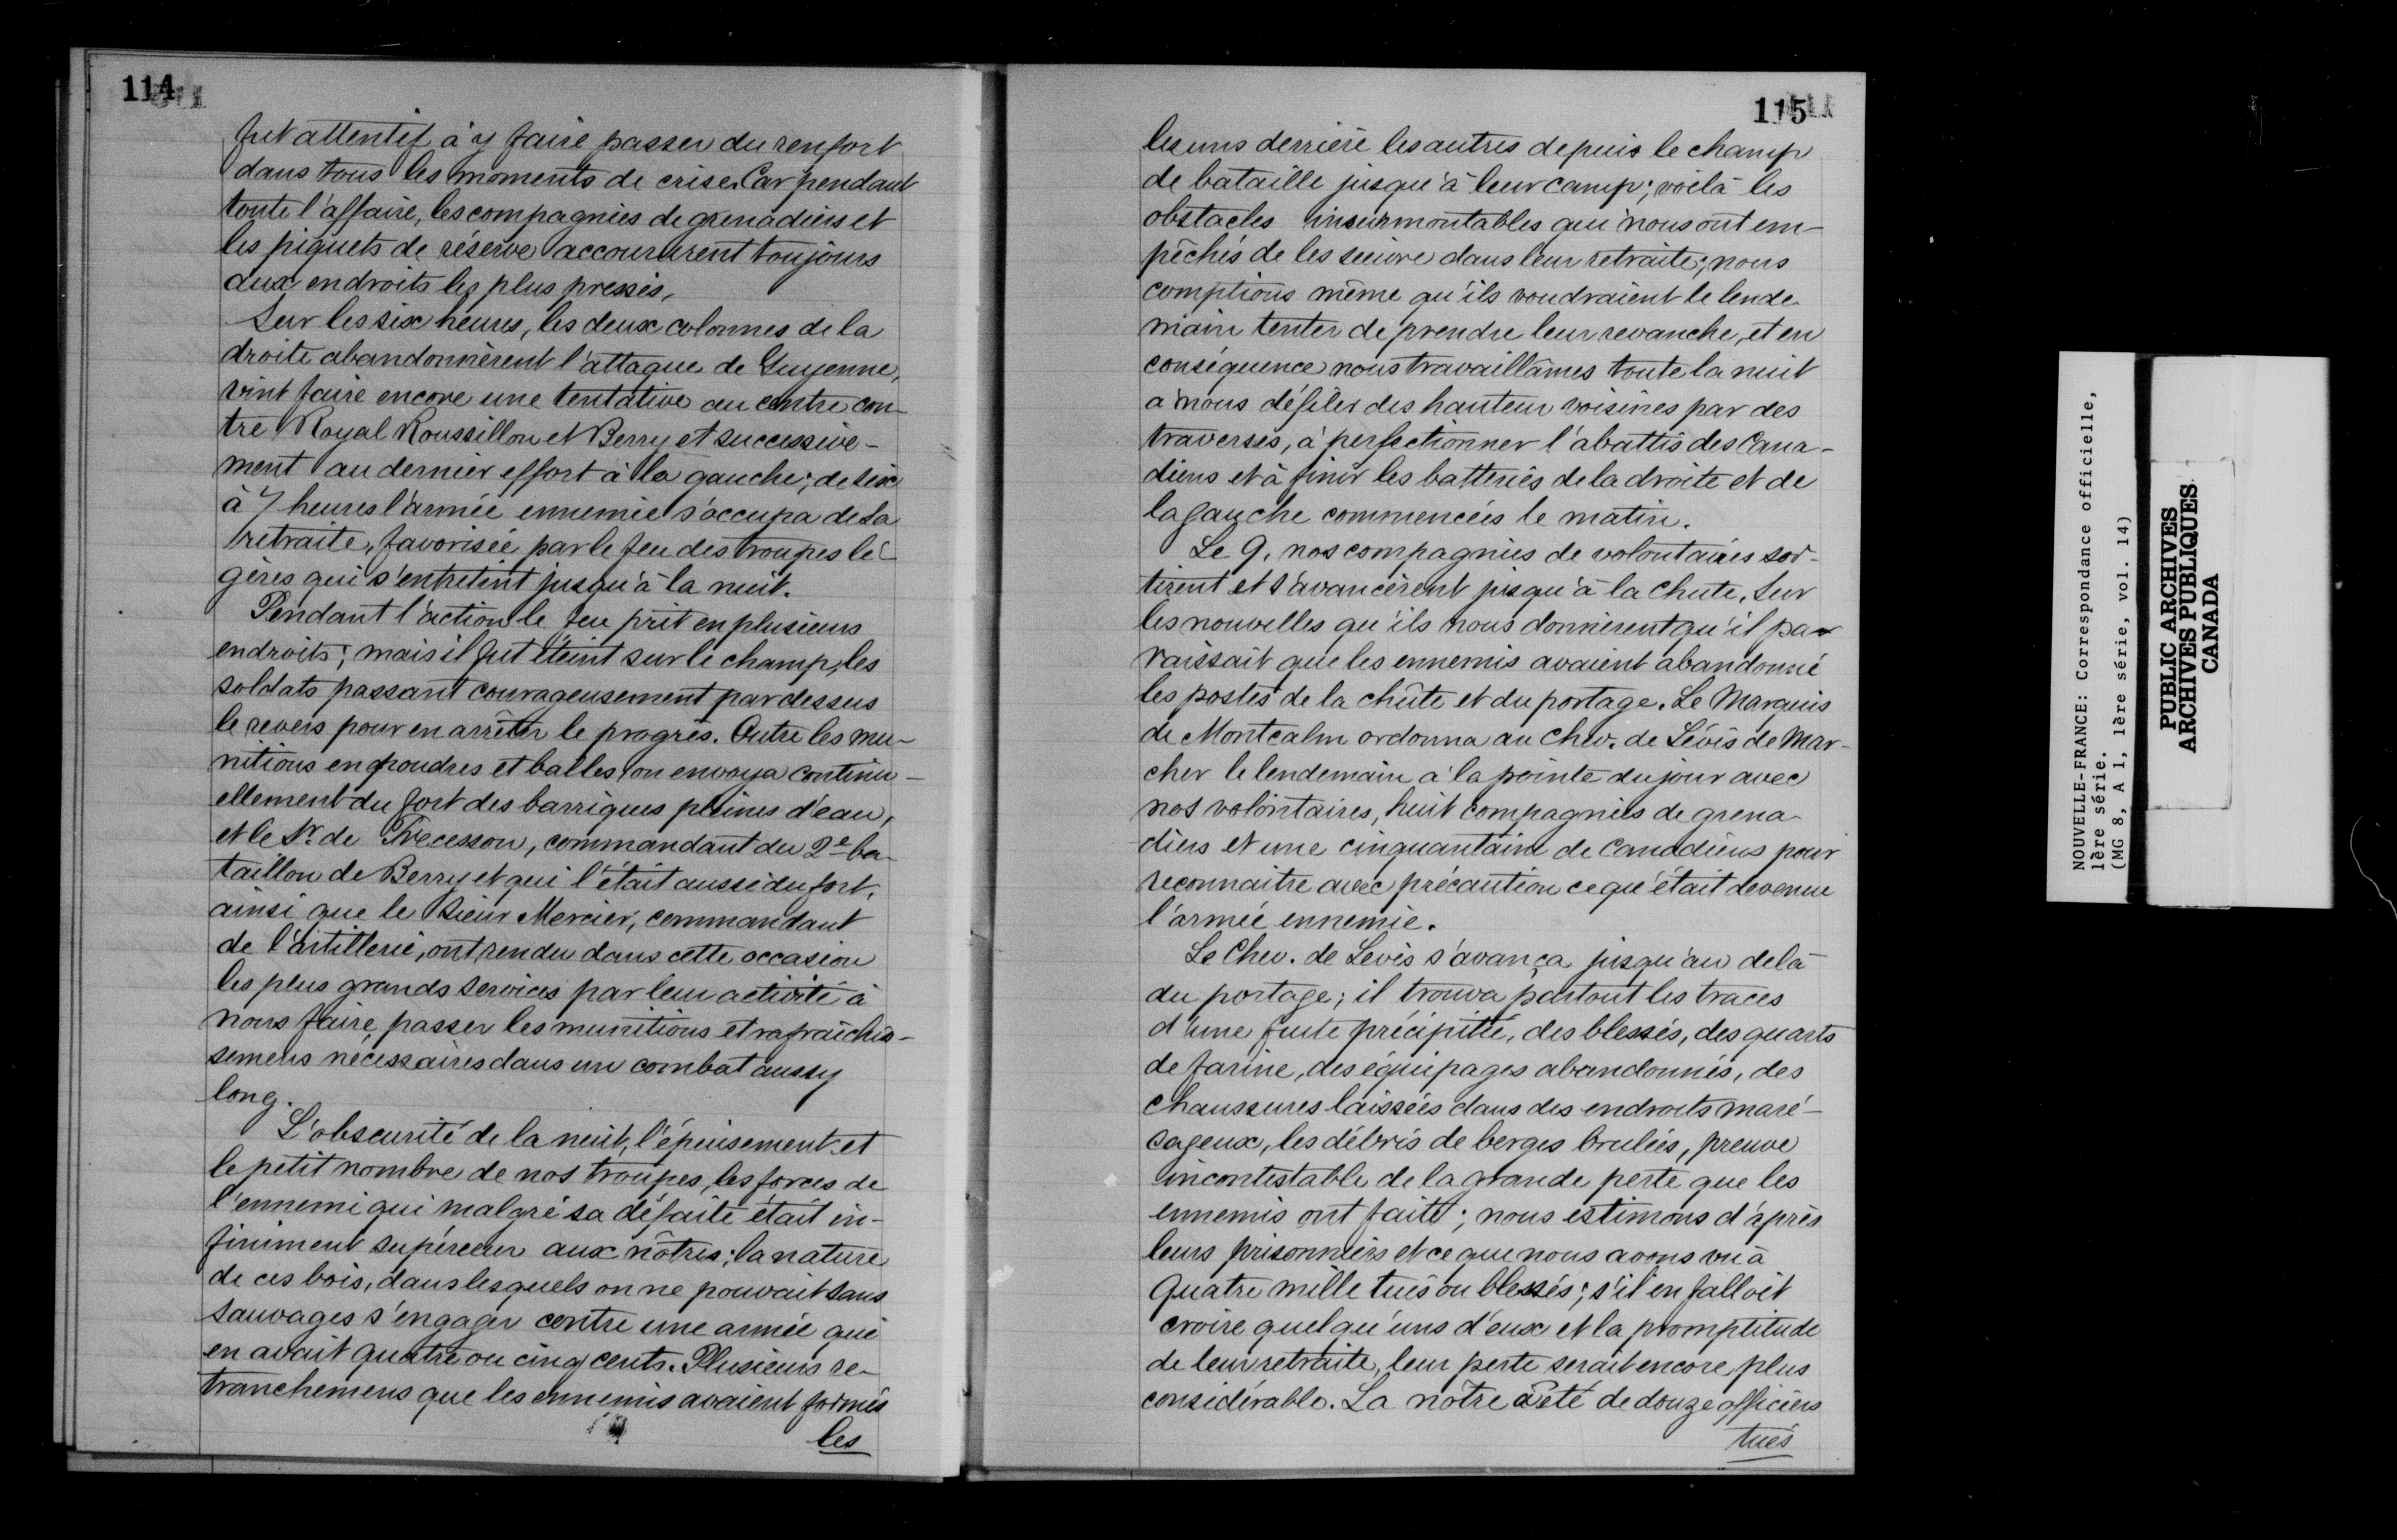 114
fut attentif à y faire passer du renfort
dans tous les moments de crise. Car pendant
toute l'affaire, les compagnies de grenadiers et
les piquets de réserve accoururent toujours
aux endroits les plus pressés.
Sur les six heures, les deux colonnes de la
droite abandonnèrent l'attaque de Guyenne,
vint faire encore une tentative au centre con-
tre Royal Roussillon et Berry et successive-
ment au dernier effort à la gauche; de six
à 7 heures l'armée ennemie s'occupa de sa
retraite, favorisée par le feu des troupes lé-
gères qui s'entretint jusqu'à la nuit.
Pendant l'action le feu prit en plusieurs
endroits; mais il fut éteint sur le champ, les
soldats passant courageusement par dessus
le revers pour en arrêter le progrès. Outre les mu-
nitions en poudres et balles on envoya continu-
ellement du fort des barriques pleines d'eau,
et le Sr. de Trecesson, commandant du 2e ba-
taillon de Berry et qui l'était aussi du fort,
ainsi que le Sieur Mercier, commandant
de l'artillerie, ont rendu dans cette occasion
les plus grands services par leur activité à
nous faire passer les munitions et rafraichis-
semens nécessaires dans un combat aussy
long.
L'obscurité de la nuit, l'épuisement et
le petit nombre de nos troupes, les forces de
l'ennemi qui malgré sa défaite était in-
finiment supérieur aux nôtres; la nature
de ces bois, dans lesquels on ne pouvait sans
sauvages s'engager contre une armée qui
en avait quatre ou cinq cents. Plusieurs re-
tranchemens que les ennemis avaient formés
les
115
les uns derrière les autres depuis le champ
de bataille jusqu'à leur camp; voilà les
obstacles insurmontables qui nous ont em-
pêchés de les suivre dans leur retraite; nous
comptions même qu'ils voudraient le lende-
main tenter de prendre leur revanche, et en
conséquence nous travaillâmes toute la nuit
à nous défiler des hauteur voisines par des
traverses, à perfectionner l'abattis des Cana-
diens et à finir les batteries de la droite et de
la gauche commencées le matin.
Le 9, nos compagnies de volontaires sor-
tirent et s'avancèrent jusqu'à la Chute. Sur
les nouvelles qu'ils nous donnèrent qu'il pa-
raissait que les ennemis avaient abandonné
les postes de la chûte et du portage. Le Marquis
de Montcalm ordonna au Chev. de Lévis de Mar-
cher le lendemain à la pointe du jour avec
nos volontaires, huit compagnies de grena-
diers et une cinquantaine de Canadiens pour
reconnaitre avec précaution ce qu'était devenue
l'armée ennemie.
Le Chev. de Levis s'avança jusqu'au delà
du portage; il trouva partout les traces
d'une fuite précipitée, des blessés, des quarts
de farine, des équipages abandonnés, des
chaussures laissées dans des endroits maré-
cageux, les débris de berges brulées, preuve
incontestable de la grande perte que les
ennemis ont faite; nous estimons d'après
leurs prisonniers et ce que nous avons vu à
quatre mille tués ou blessés; s'il en falloit
croire quelqu'uns d'eux et la promptitude
de leur retraite, leur perte serait encore plus
considérable. La nôtre a été de douze officiers
tués
NOUVELLE-FRANCE: Correspondance officielle,
1ère série.
(MG 8, A 1, 1ère série, vol. 14)
PUBLIC ARCHIVES
ARCHIVES PUBLIQUES
CANADA